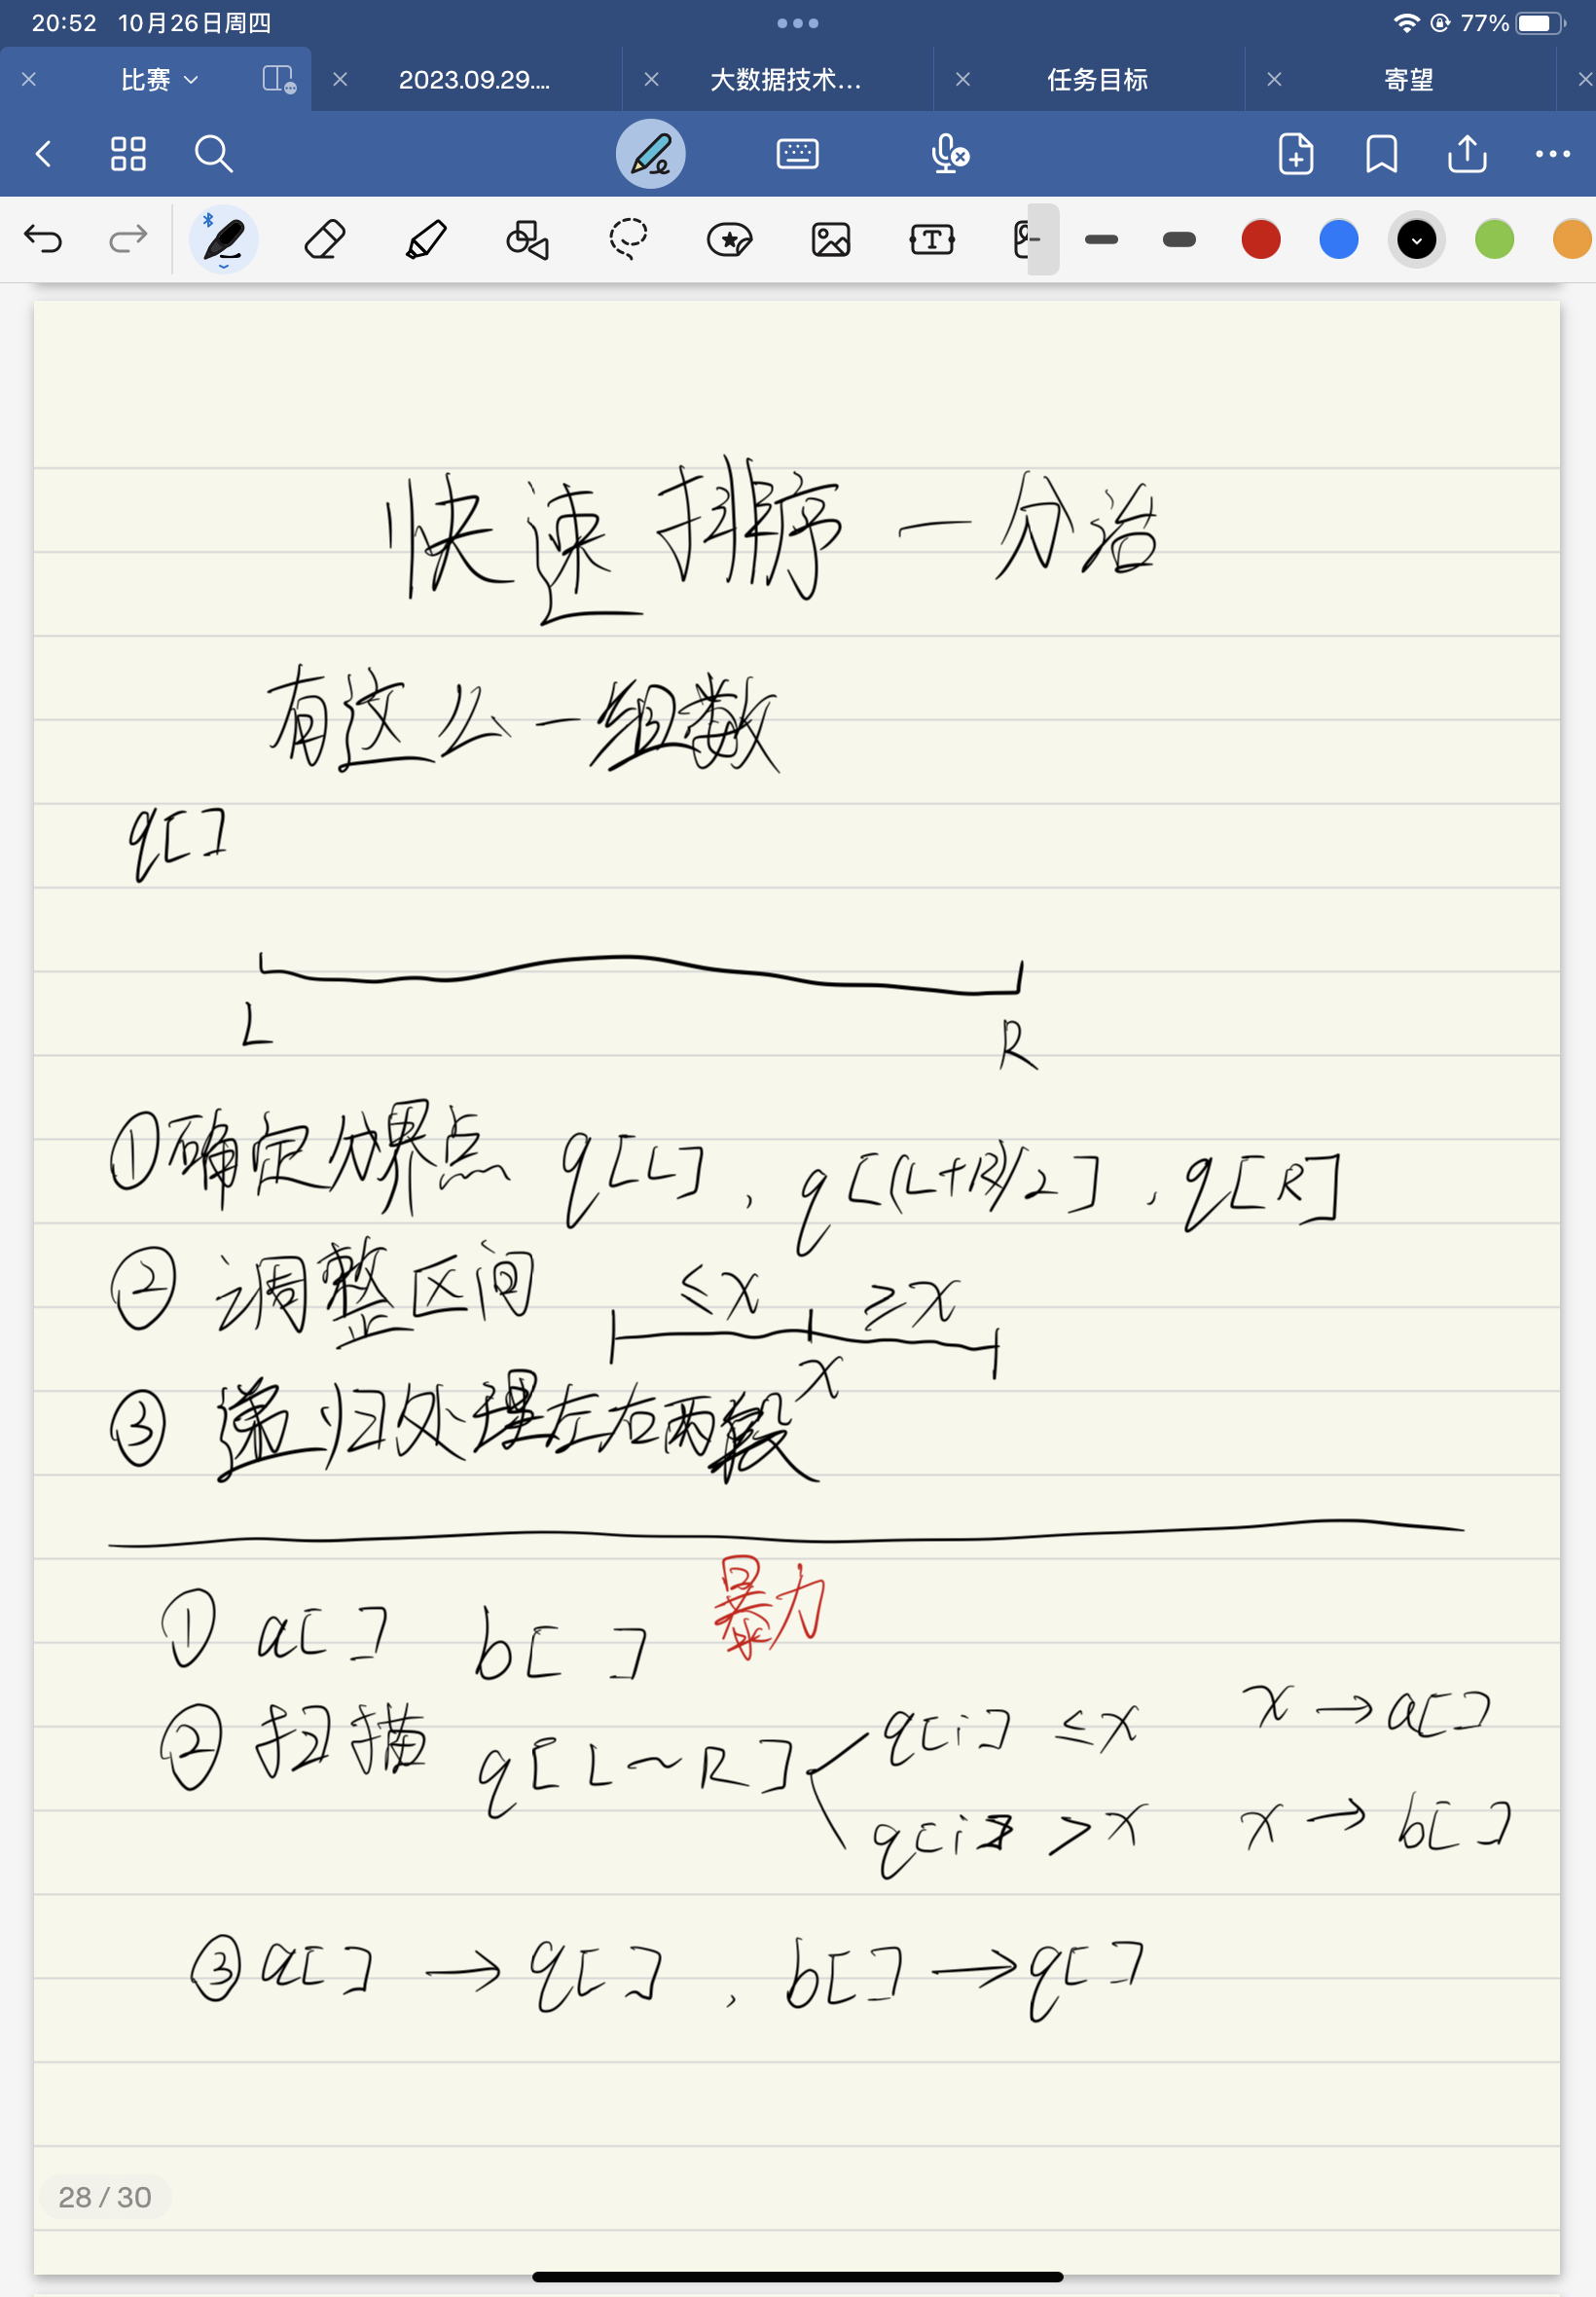 20:52 10月26日周四
77%
比赛
2023.09.29....
大数据技术...
任务目标
寄望
快速排序一分治
有这么一组数
q[]
L
R
①确定分界点 q[L], q[(L+R)/2], q[R]
②调整区间 ≤x ≥x
x
③递归处理左右两段
暴力
①a[] b[ ]
②扫描 q[L~R] q[i] ≤x x→a[]
q[i] >x x→b[]
③a[] →q[], b[]→q[]
28 / 30